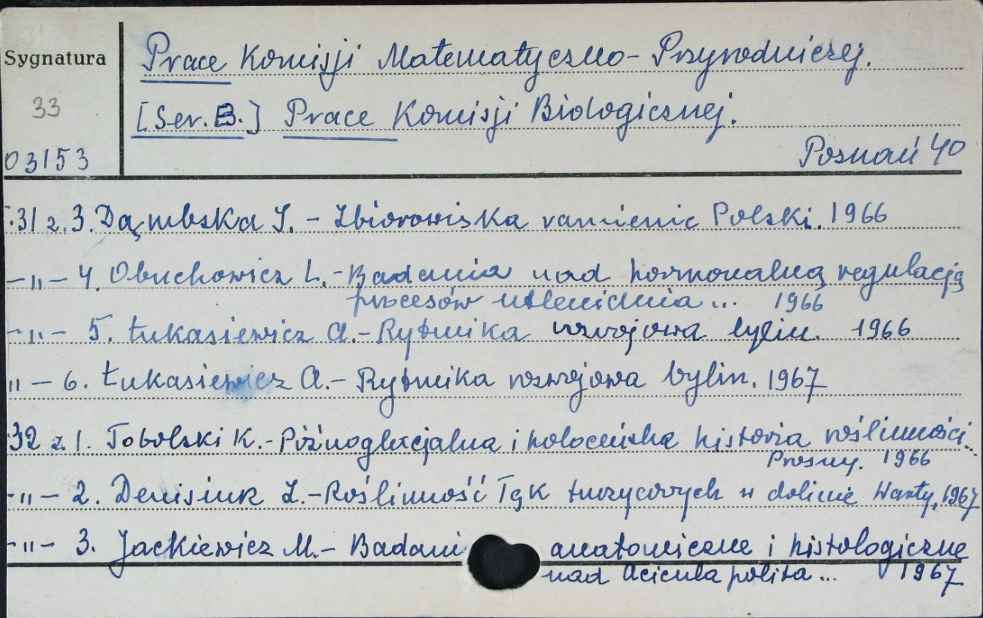 Sygnatura
33
03153
Prace Komisji Matematyczno-Przyrodniczej.
[Ser. B.] Prace Komisji Biologicznej.
Poznań 40
t.31 z. 3. Dąmbska I. - Zbiorowiska ramienic Polski. 1966
-"- 4. Obuchowicz L. - Badania nad hormonalną regulacją
procesów utleniania ... 1966
-"- 5. Łukasiewicz A. - Rytmika rozwojowa bylin. 1966
"- 6. Łukasiewicz A. - Rytmika rozwojowa bylin. 1967
t.32 z. 1. Tobolski K. - Późnoglacjalna i holoceńska historia roślinności...
Prosny. 1966
-"- 2. Denisiuk Z. - Roślinność łąk turzycowych w dolinie Warty, 1967
-"- 3. Jackiewicz M. - Badani anatomiczne i histologiczne
nad Acicula polita ... 1967